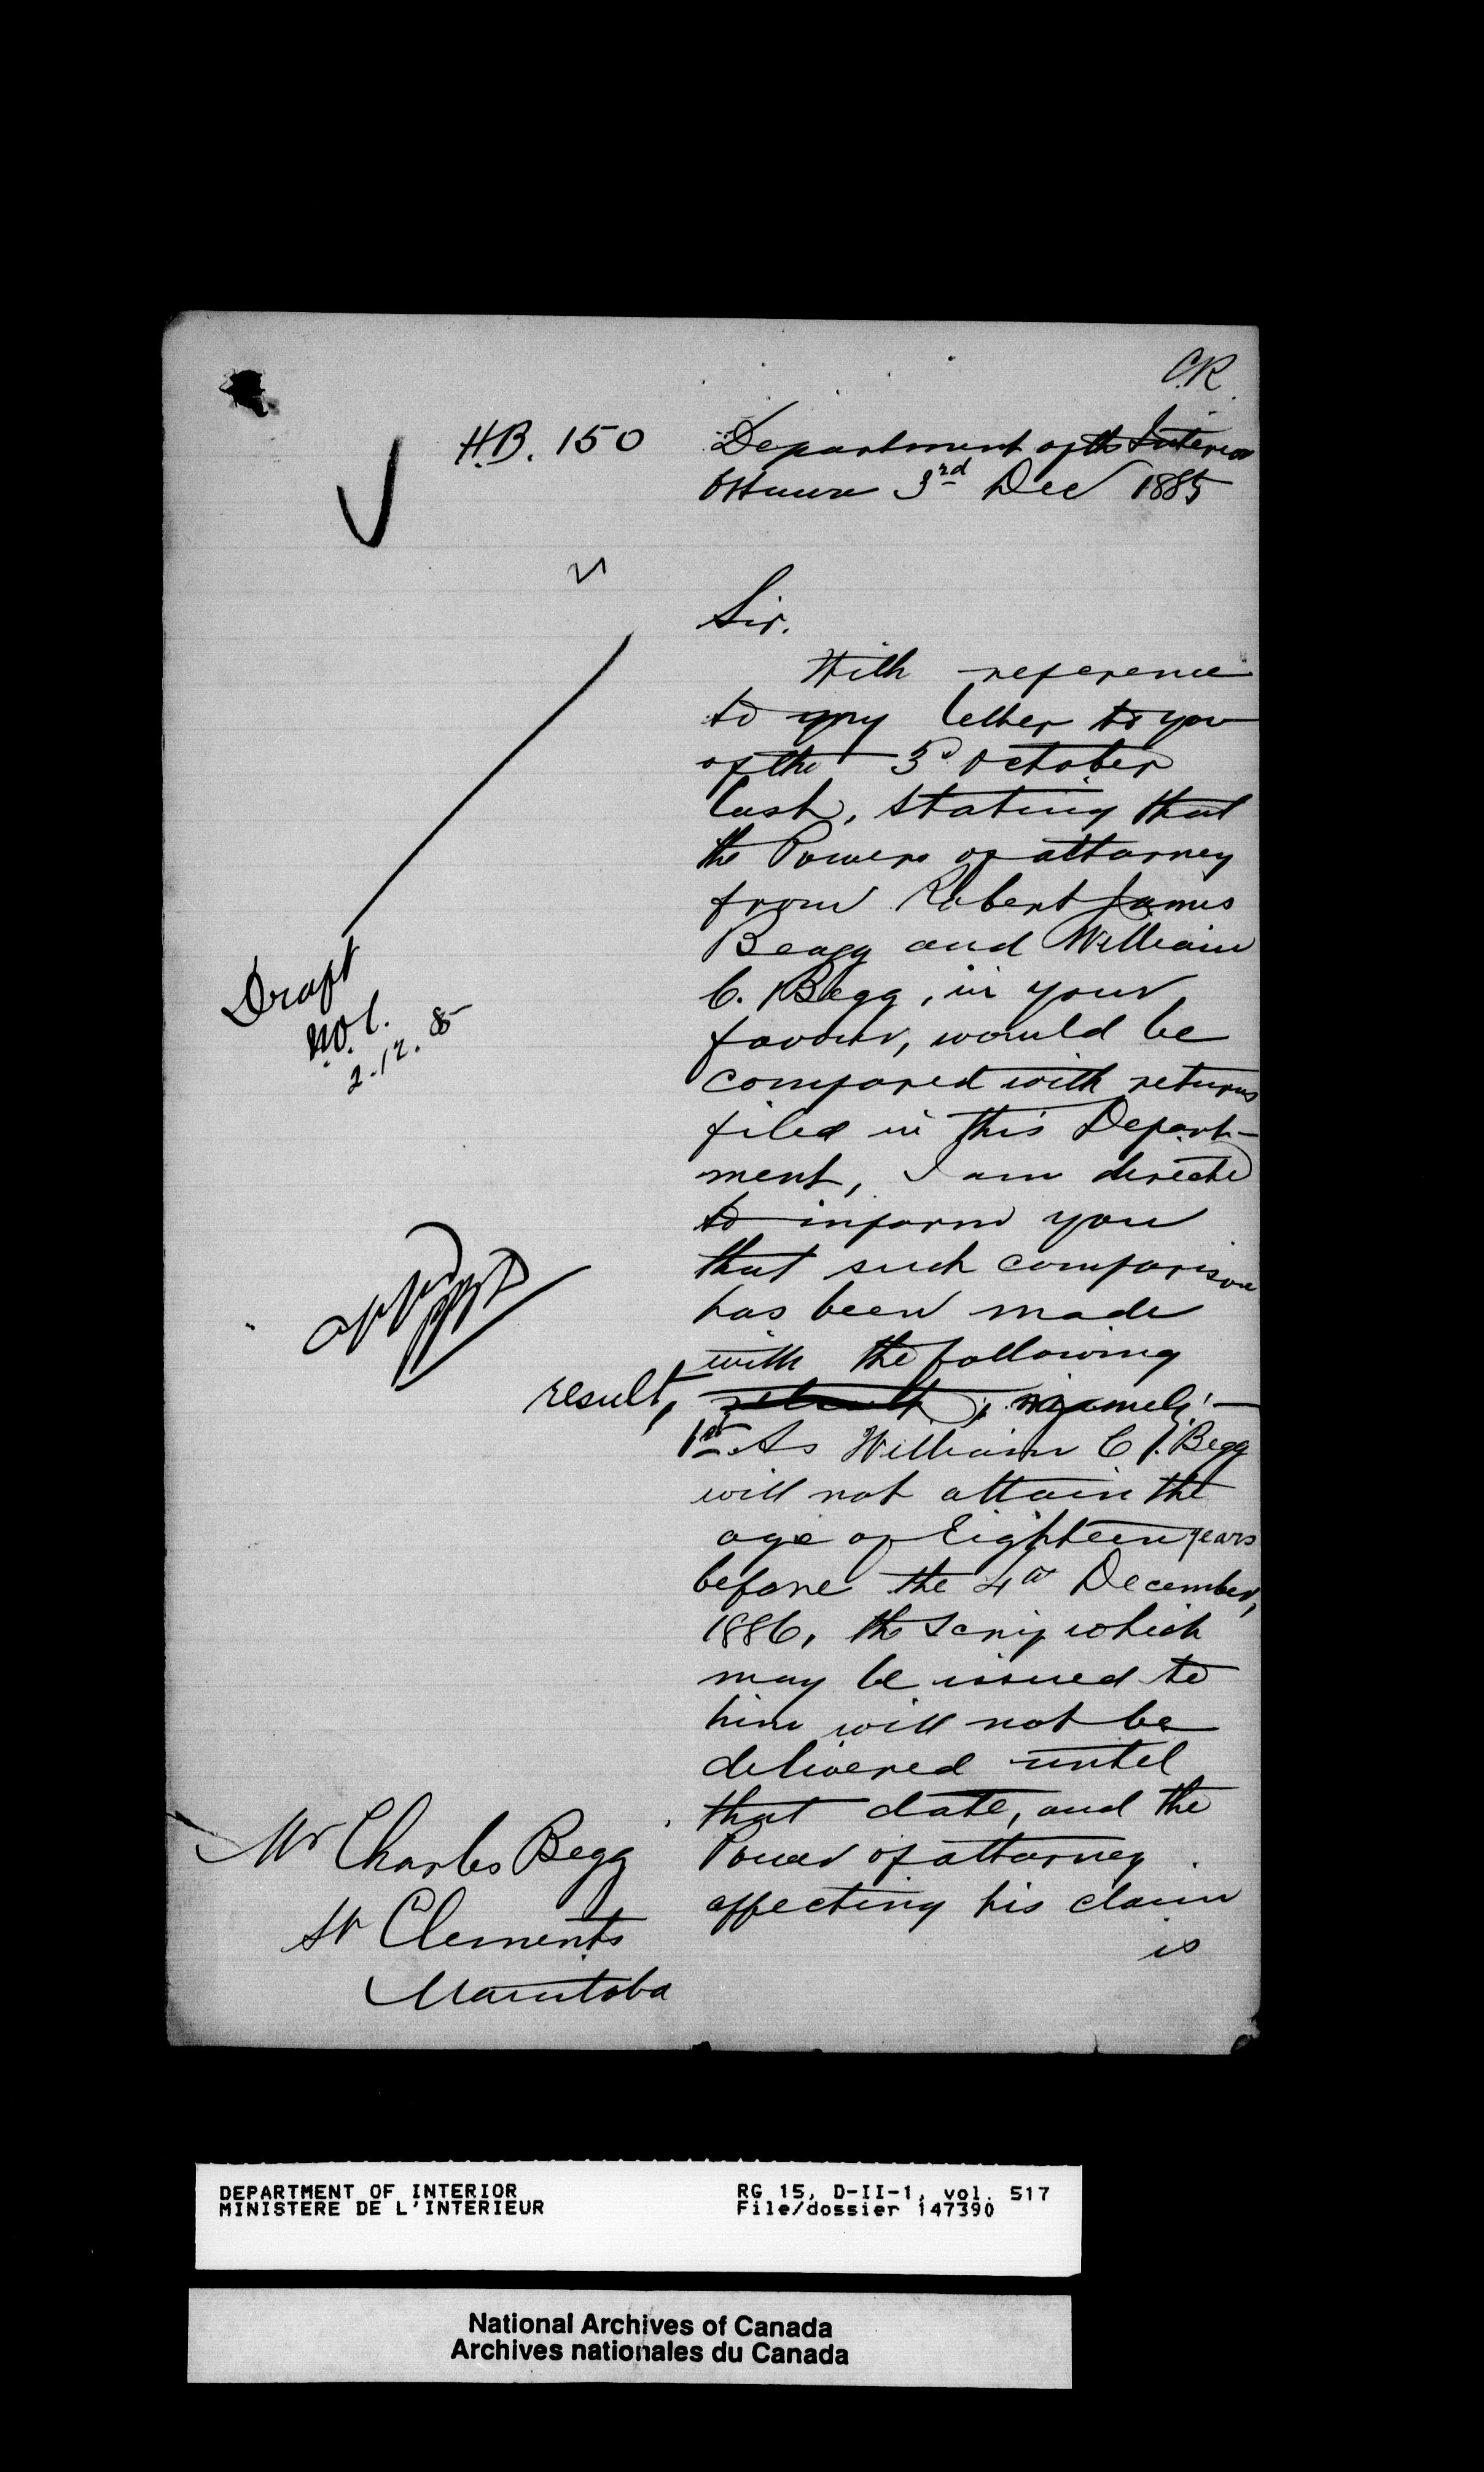 C.R.
H.B. 150
Department of the Interior
Ottawa 3rd Dec 1885
Sir.
With reference
to my letter to you
of the 3d October
last, stating that
the Powers of attorney
from Robert James
Beagg and William
C. Begg, in your
favour, would be
compared with returns
filed in this Depart-
ment, I am directed
to inform you
that such comparison
has been made
with the following
result, namely:—
1st As William C J. Begg
will not attain the
age of Eighteen years
before the 4th December,
1886, the scrip which
may be issued to
him will not be
delivered until
that date, and the
Power of attorney
affecting his claim
is
Draft
2.12.85
Mr Charles Begg
St Clements
Manitoba
DEPARTMENT OF INTERIOR
MINISTERE DE L'INTERIEUR
RG 15, D-II-1, vol. 517
File/dossier 147390
National Archives of Canada
Archives nationales du Canada